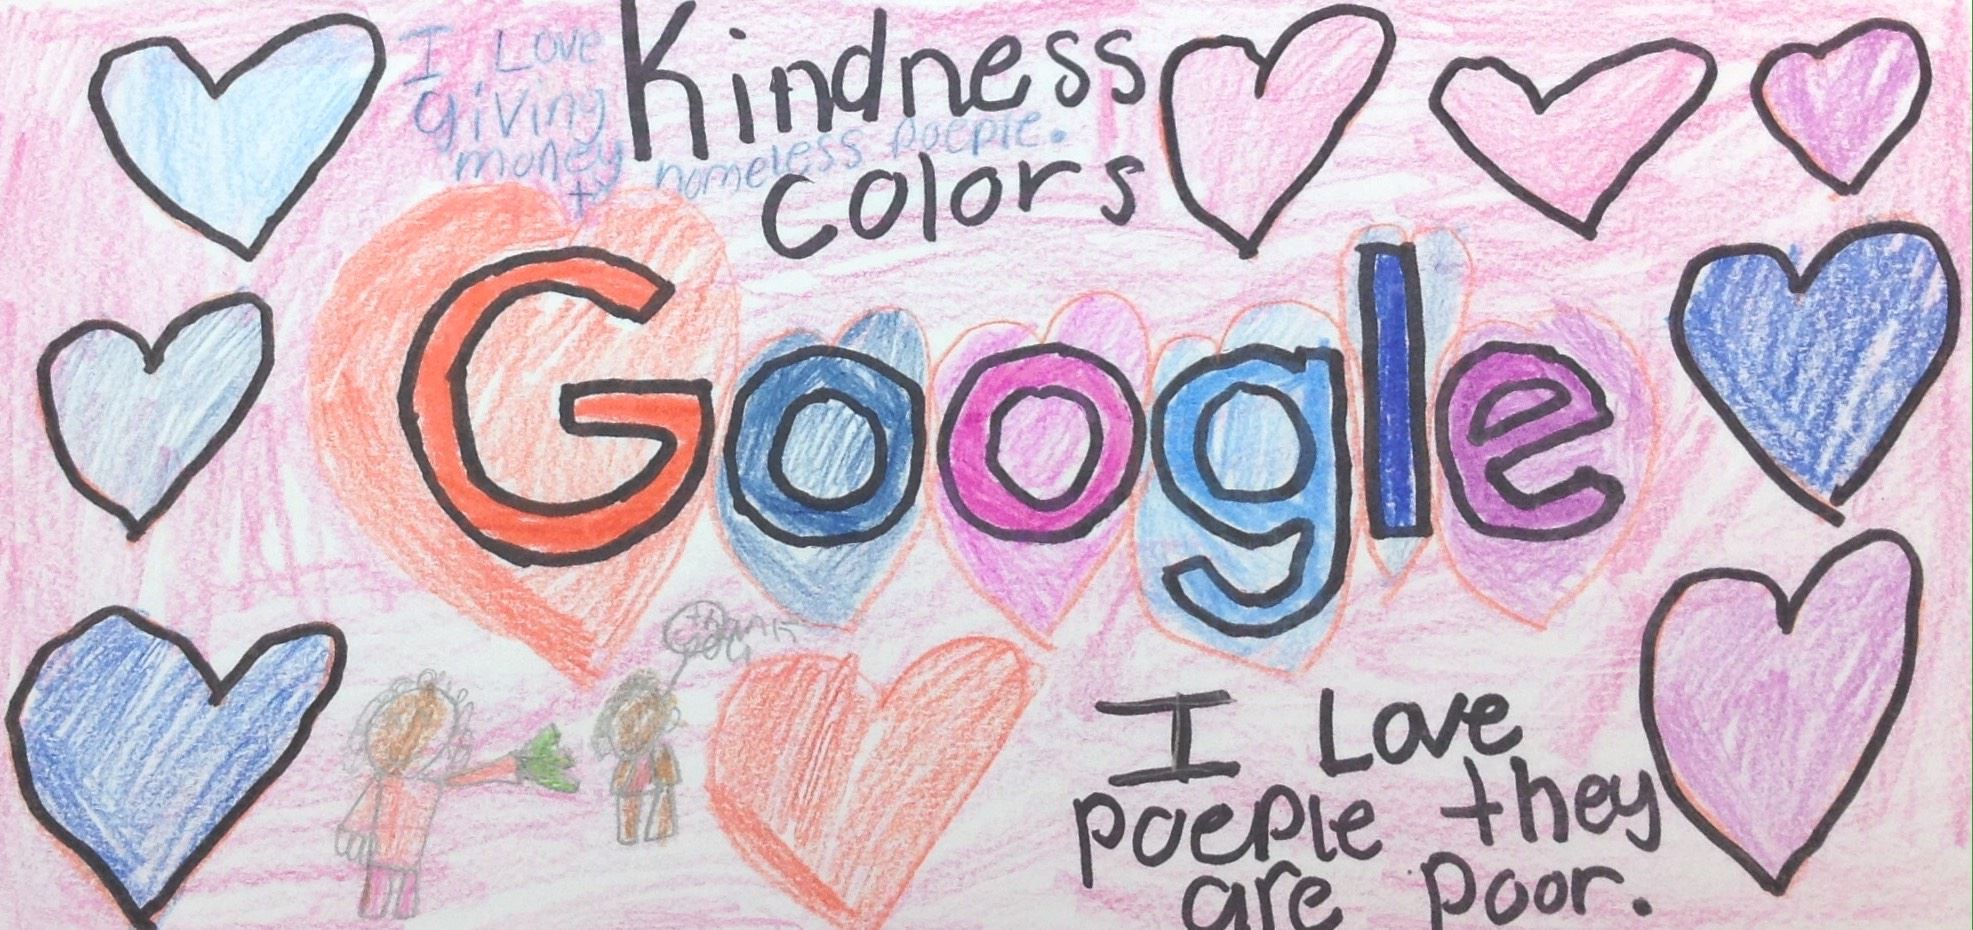 I Love
giving
money
to homeless poeple.
Kindness
colors
Google
thank
you
I Love
poeple they
are poor.